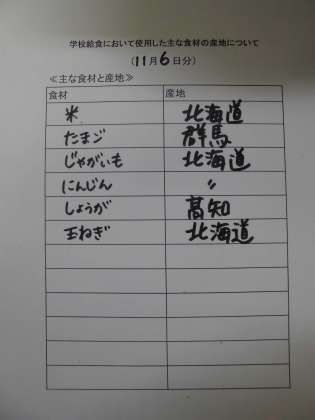 学校給食において使用した主な食材の産地について
(11月6日分)
≪主な食材と産地≫
食材 産地
米 北海道
たまご 群馬
じゃがいも 北海道
にんじん 〃
しょうが 高知
玉ねぎ 北海道